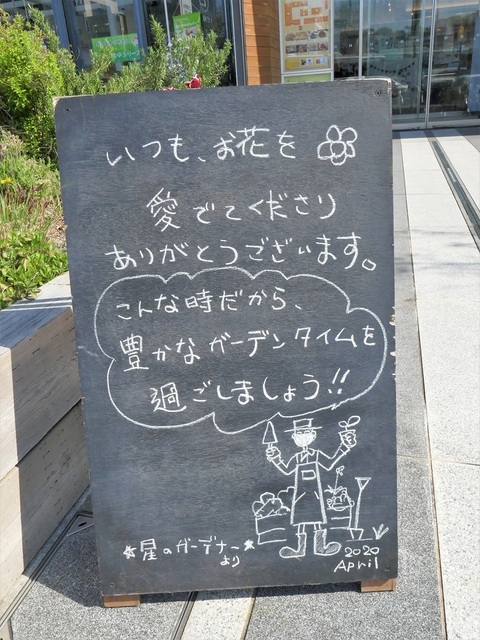 いつも、お花を
愛でてくださり
ありがとうございます。
こんな時だから、
豊かなガーデンタイムを
過ごしましょう!!
★星のガーデナー★
より
2020
April